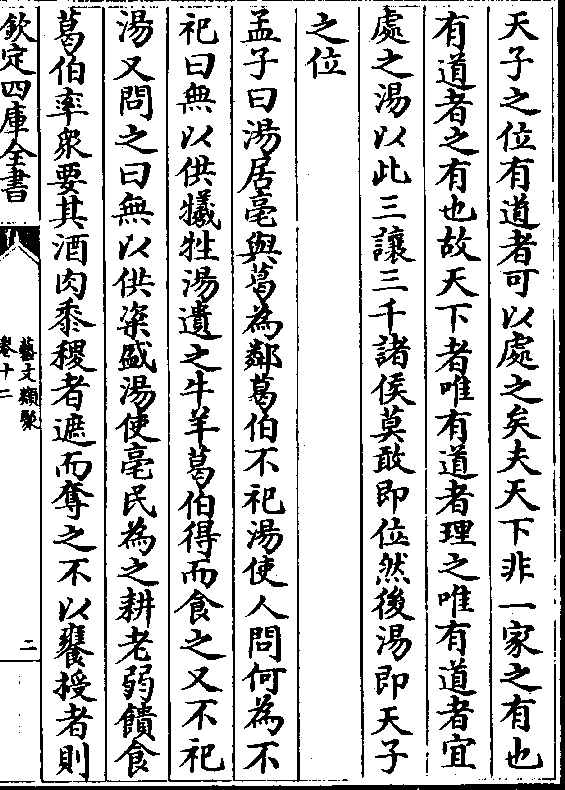 天子之位有道者可以處之矣夫天下非一家之有也
有道者之有也故天下者唯有道者理之唯有道者宜
處之湯以此三讓三千諸侯莫敢即位然後湯即天子
之位
孟子曰湯居亳與葛為鄰葛伯不祀湯使人問何為不
祀曰無以供犧牲湯遺之牛羊葛伯得而食之又不祀
湯又問之曰無以供粢盛湯使亳民為之耕老弱饋食
葛伯率衆要其酒肉黍稷者遮而奪之不以饔授者則
欽定四庫全書
藝文類聚
卷十二
二